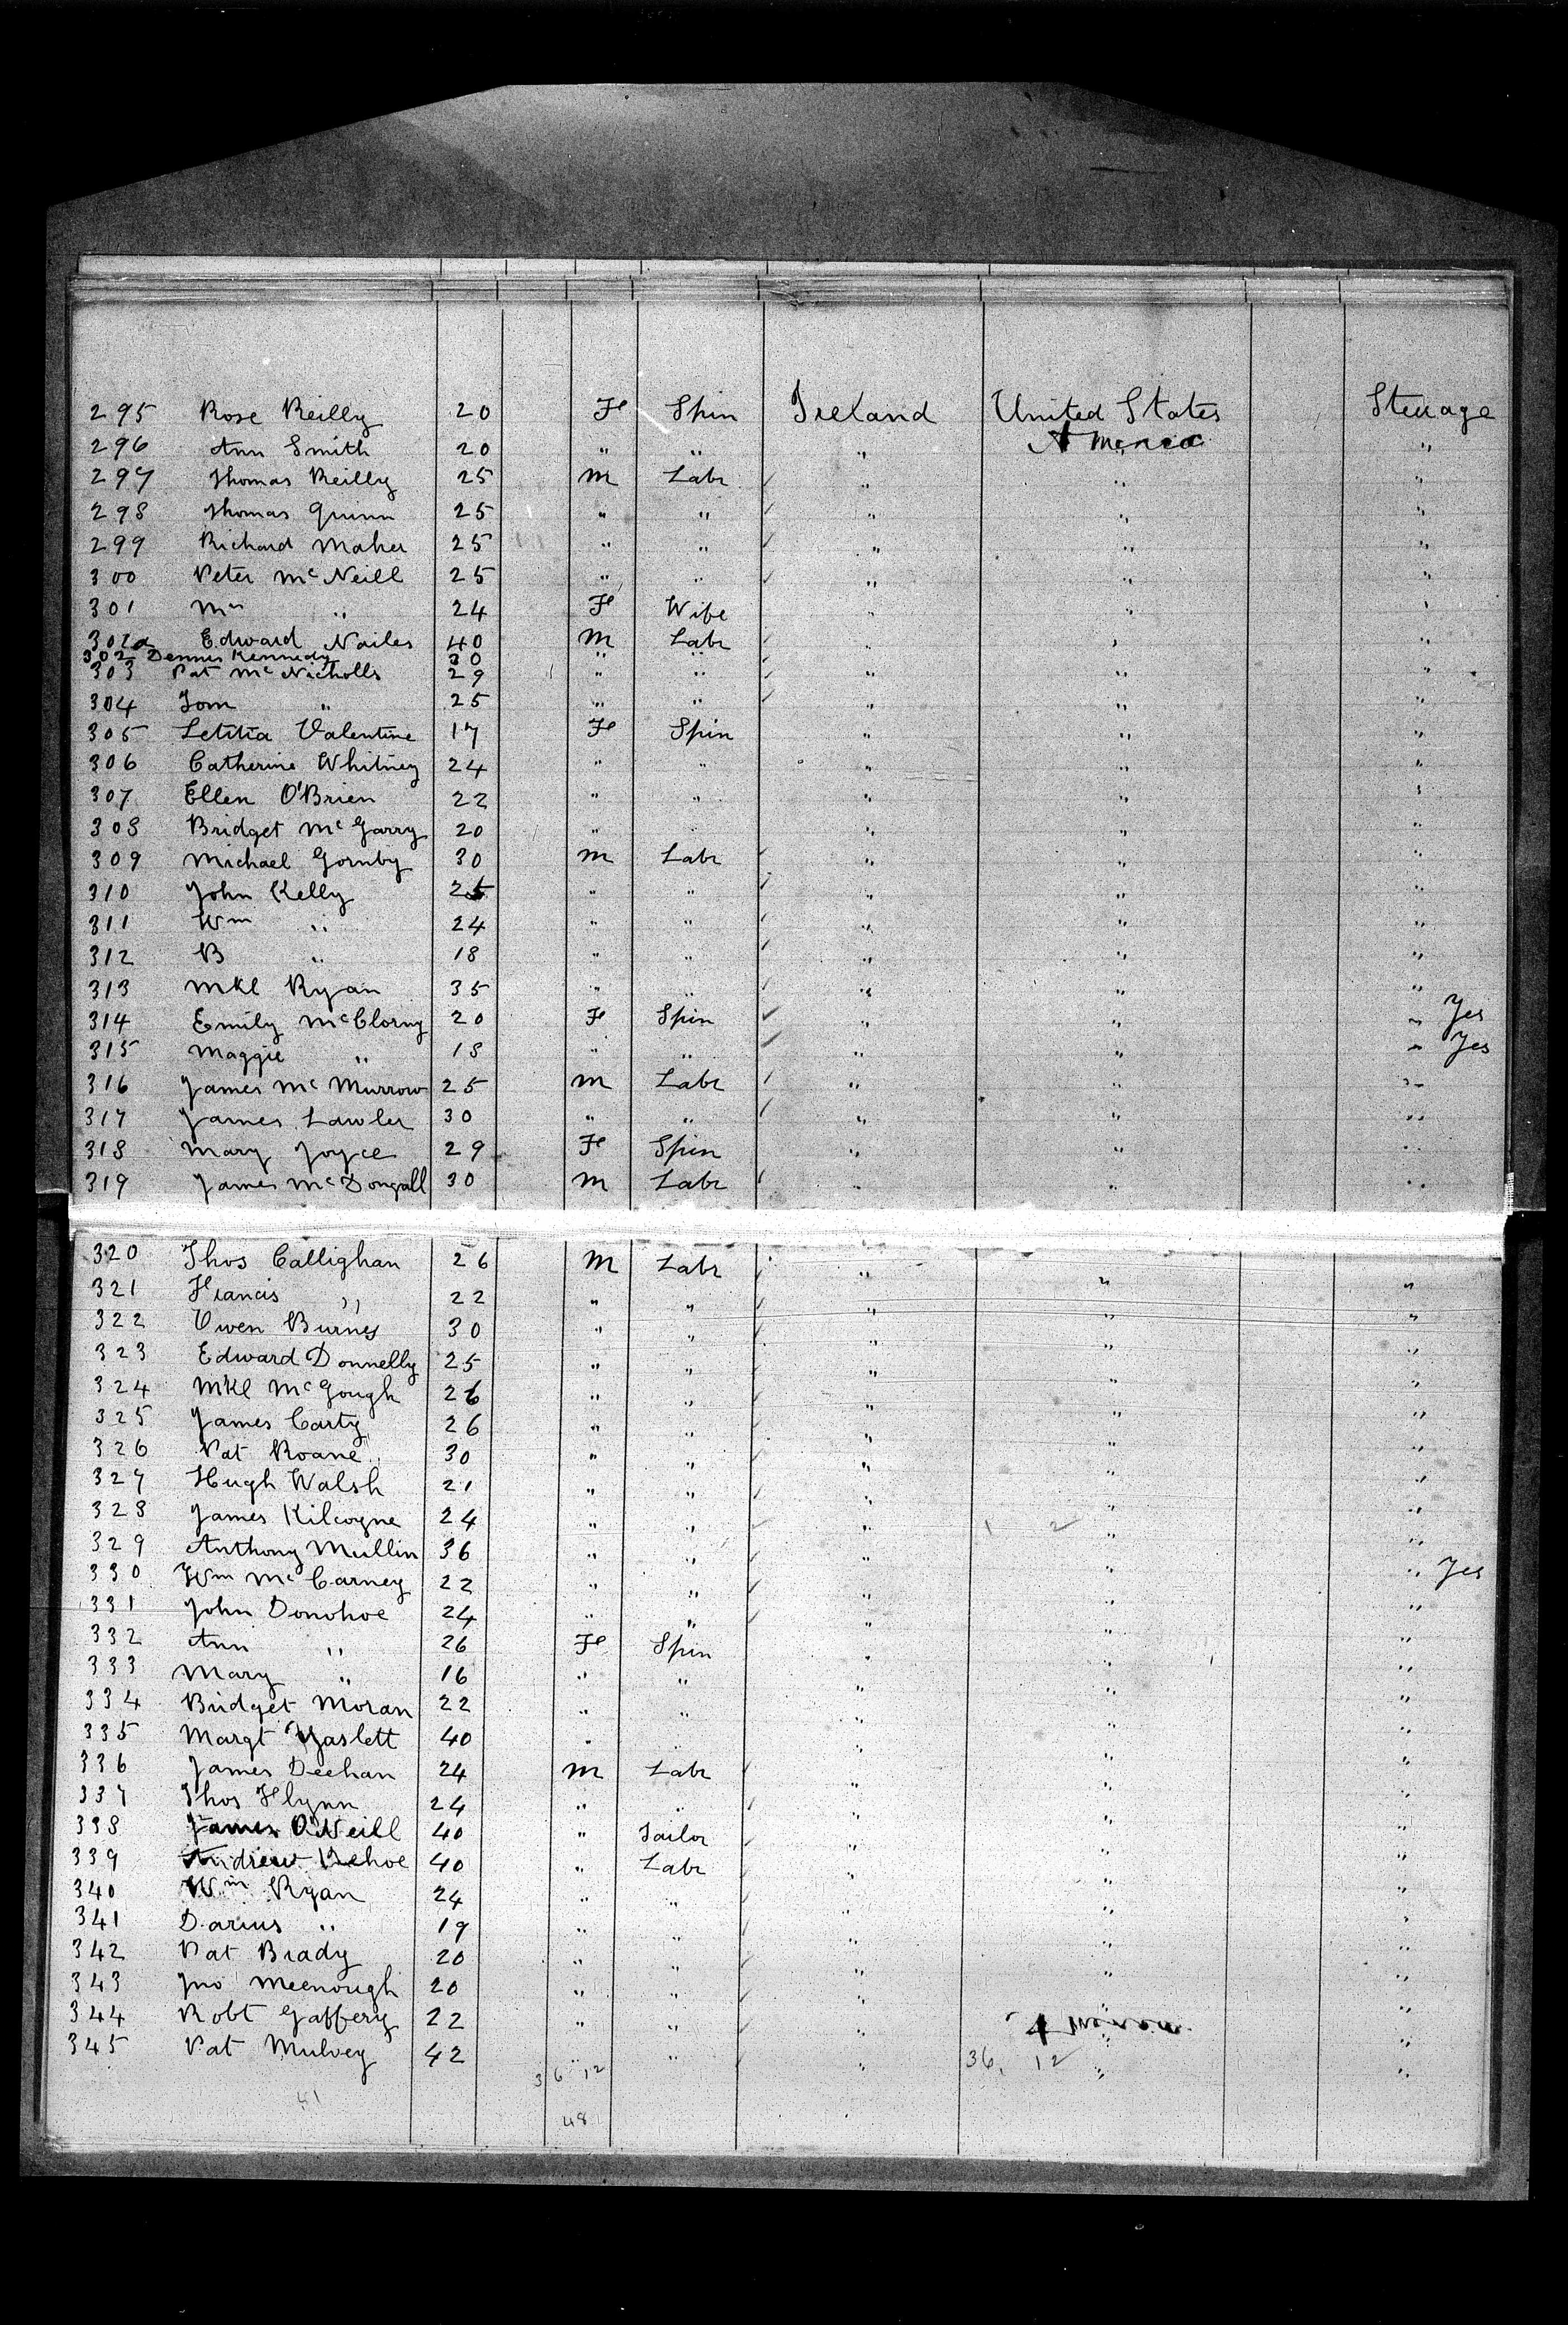 295 Rose Reilly 20 F Spin Ireland United States Steerage
America
296 Ann Smith 20 " " " " "
297 Thomas Reilly 25 M Labr " " "
298 Thomas Quinn 25 " " " " "
299 Richard Maher 25 " " " " "
300 Peter McNeill 25 " " " " "
301 Mrs " 24 F Wife " " "
302a Edward Nailes 40 M Labr " " "
302 Dennis Kennedy 30 " "
303 Pat McNicholls 29 " " " " "
304 Tom " 25 " " " " "
305 Letitia Valentine 17 F Spin " " "
306 Catherine Whitney 24 " " " " "
307 Ellen O'Brien 22 " " " " "
308 Bridget McGarry 20 " " " " "
309 Michael Gornby 30 M Labr " " "
310 John Kelly 25 " " " " "
311 Wm " 24 " " " " "
312 B " 18 " " " " "
313 Mkl Ryan 35 " " " " "
314 Emily McClorny 20 F Spin " " " Yes
315 Maggie " 18 " " " " " Yes
316 James McMurrow 25 M Labr " " "
317 James Lawler 30 " " " " "
318 Mary Joyce 29 F Spin " " "
319 James McDongall 30 M Labr " " "
320 Thos Callighan 26 M Labr " " "
321 Francis " 22 " " " " "
322 Owen Burnes 30 " " " " "
323 Edward Donnelly 25 " " " " "
324 Mkl McGough 26 " " " " "
325 James Carty 26 " " " " "
326 Pat Roane 30 " " " " "
327 Hugh Walsh 21 " " " " "
328 James Kilcoyne 24 " " " 1 2 " "
329 Anthony Mullin 36 " " " " "
330 Wm McCarney 22 " " " " " Yes
331 John Donohoe 24 " " " " "
332 Ann " 26 F Spin " " "
333 Mary " 16 " " " " "
334 Bridget Moran 22 " " " " "
335 Margt Haslett 40 " " " " "
336 James Deehan 24 M Labr " " "
337 Thos Flynn 24 " " " " "
338 James O'Neill 40 " Tailor " " "
339 Andrew Kehoe 40 " Labr " " "
340 Wm Ryan 24 " " " " "
341 Darius " 19 " " " " "
342 Pat Brady 20 " " " " "
343 Jno Meenough 20 " " " " "
344 Robt Gaffery 22 " " " " "
345 Pat Mulvey 42 " " " " "
36 12 36. 12
41
48